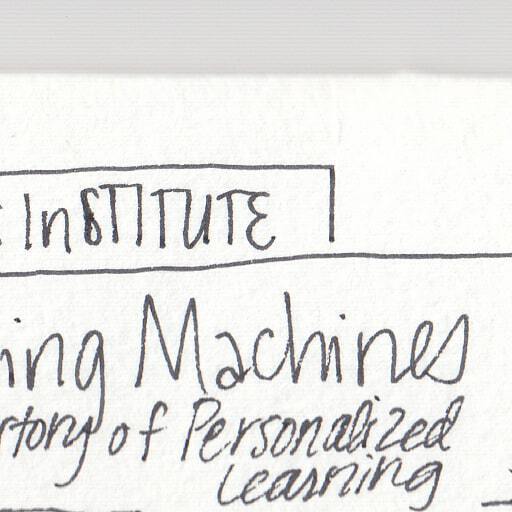 InSTITUTE
ing Machines
tory of Personalized
Learning